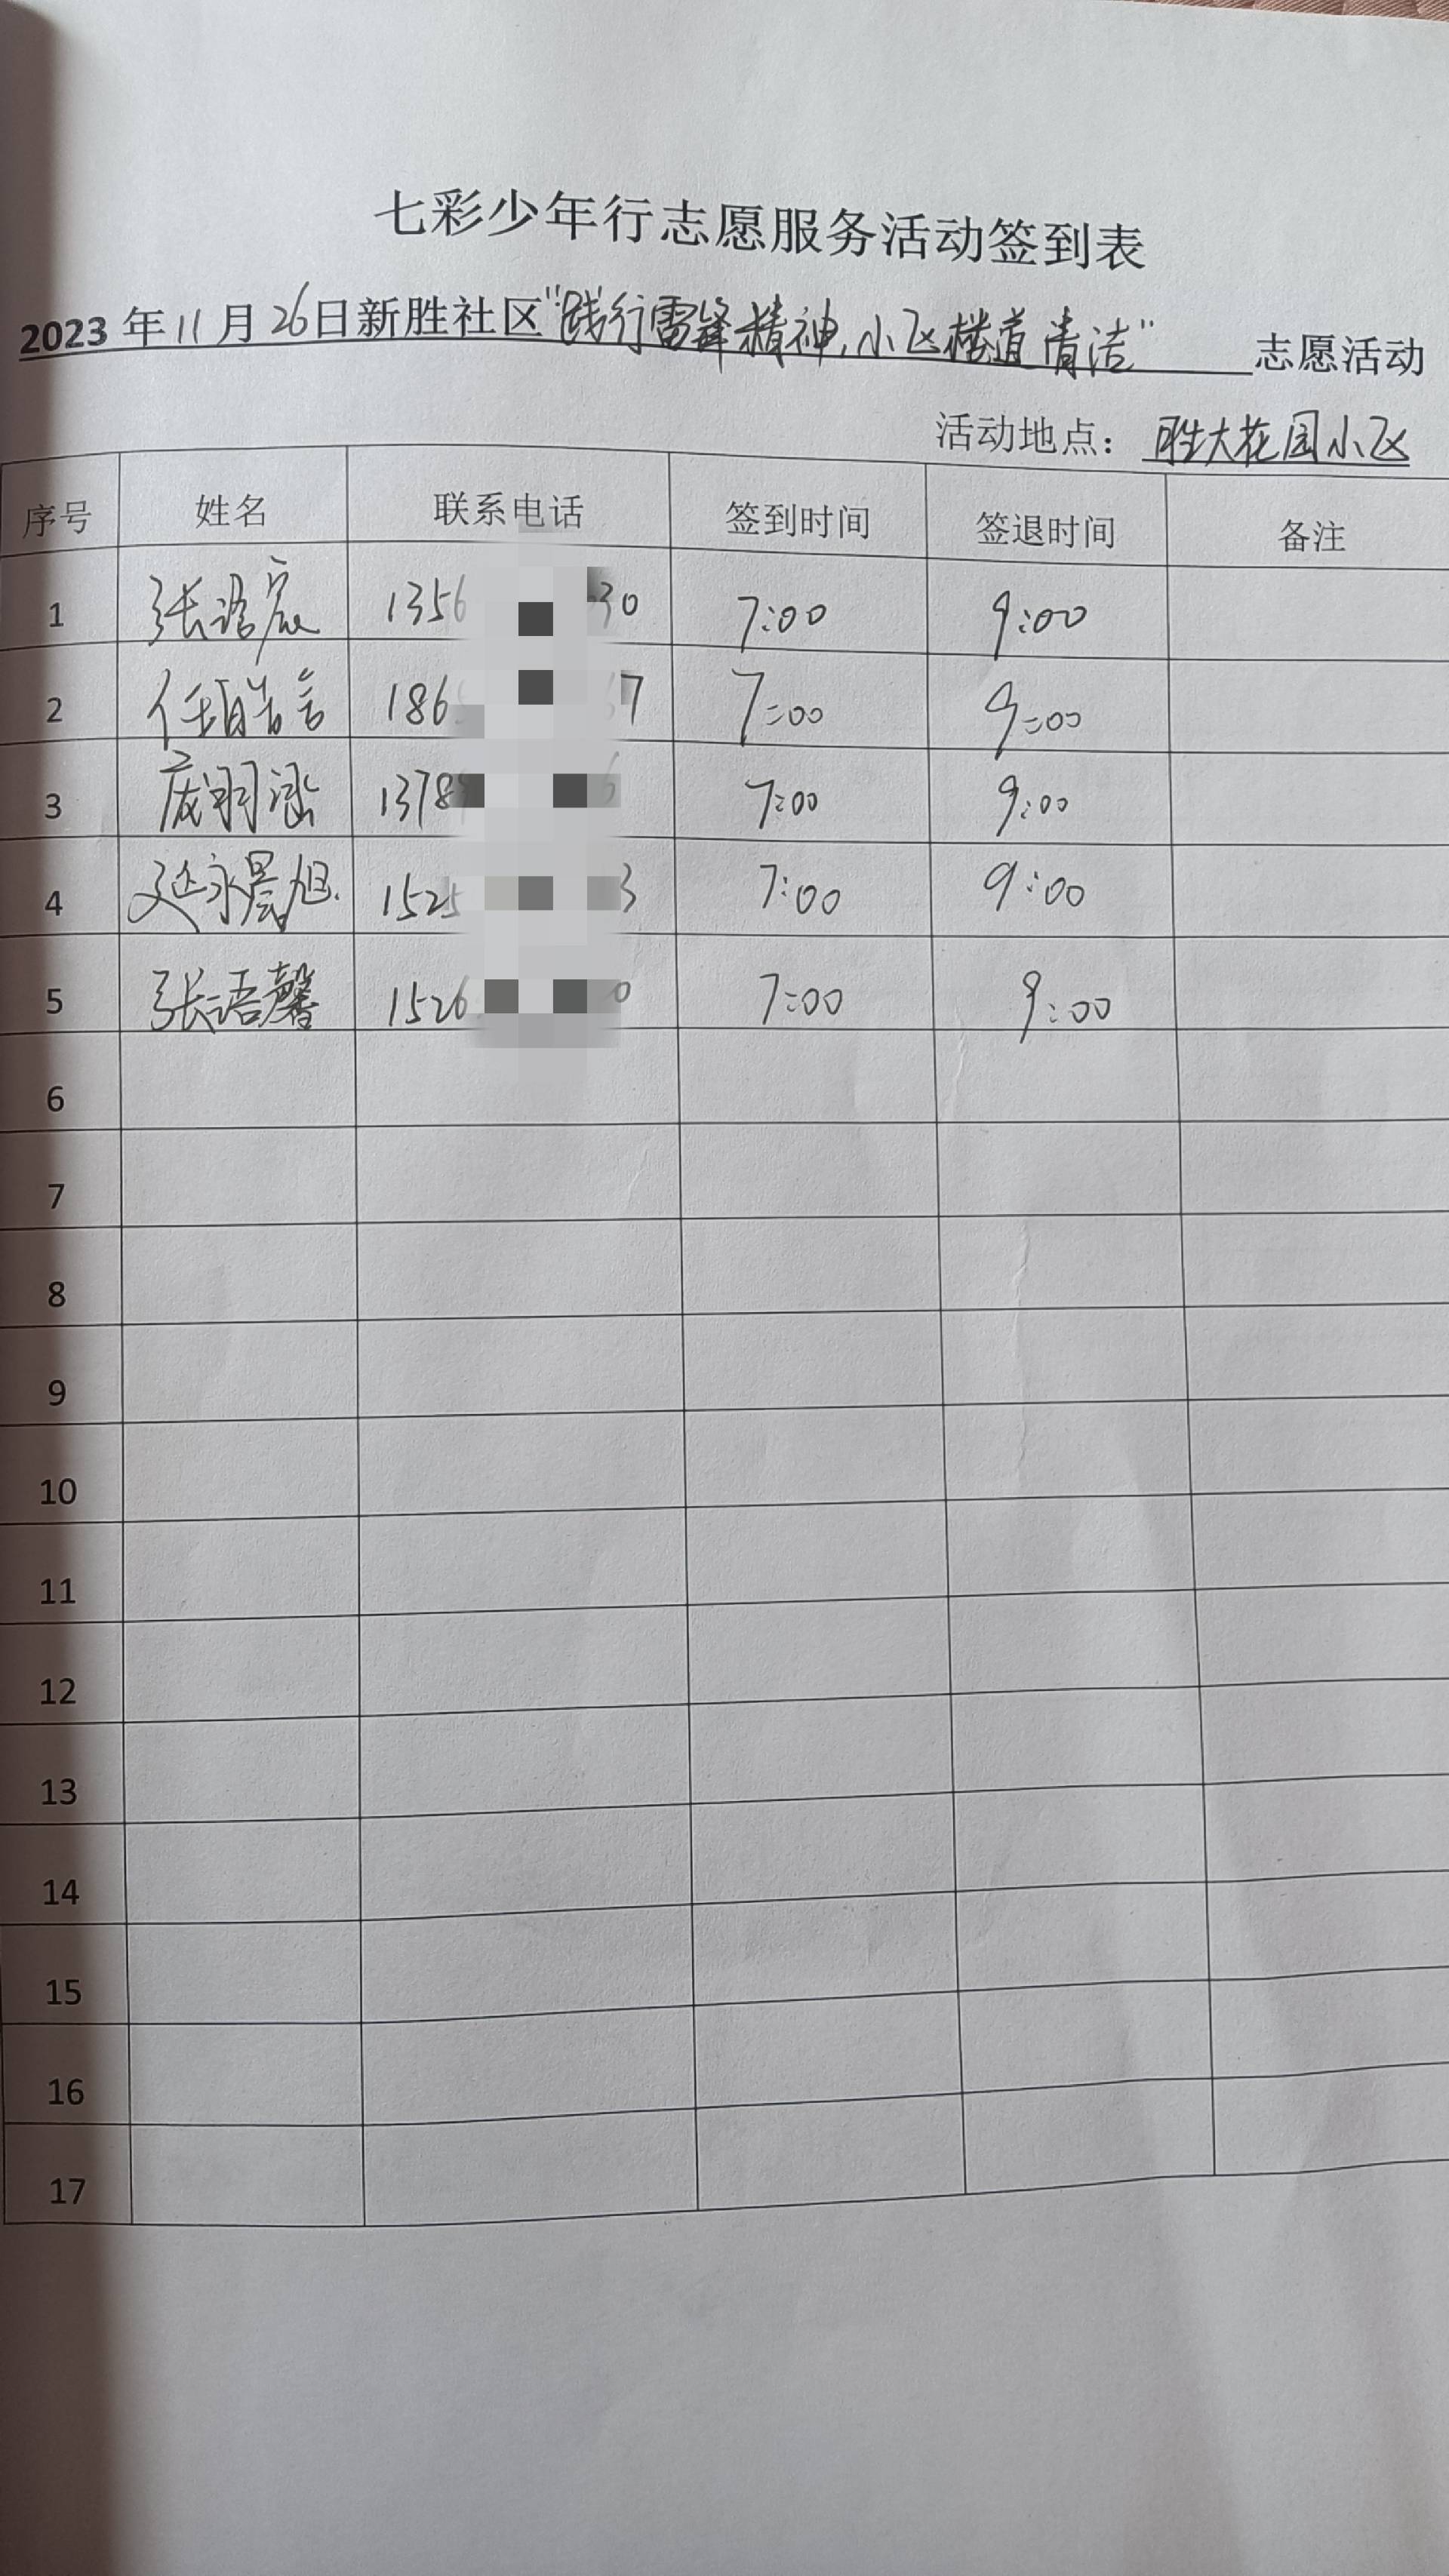 七彩少年行志愿服务活动签到表
2023 年 11 月 26 日新胜社区“践行雷锋精神,小区楼道清洁” 志愿活动
活动地点: 胜大花园小区
序号 姓名 联系电话 签到时间 签退时间 备注
1 张 1356 30 7:00 9:00
2 任 186 7 7:00 9:00
3 庞羽涵 1378 6 7:00 9:00
4 延永晨旭 1525 3 7:00 9:00
5 张语馨 1526 0 7:00 9:00
6
7
8
9
10
11
12
13
14
15
16
17